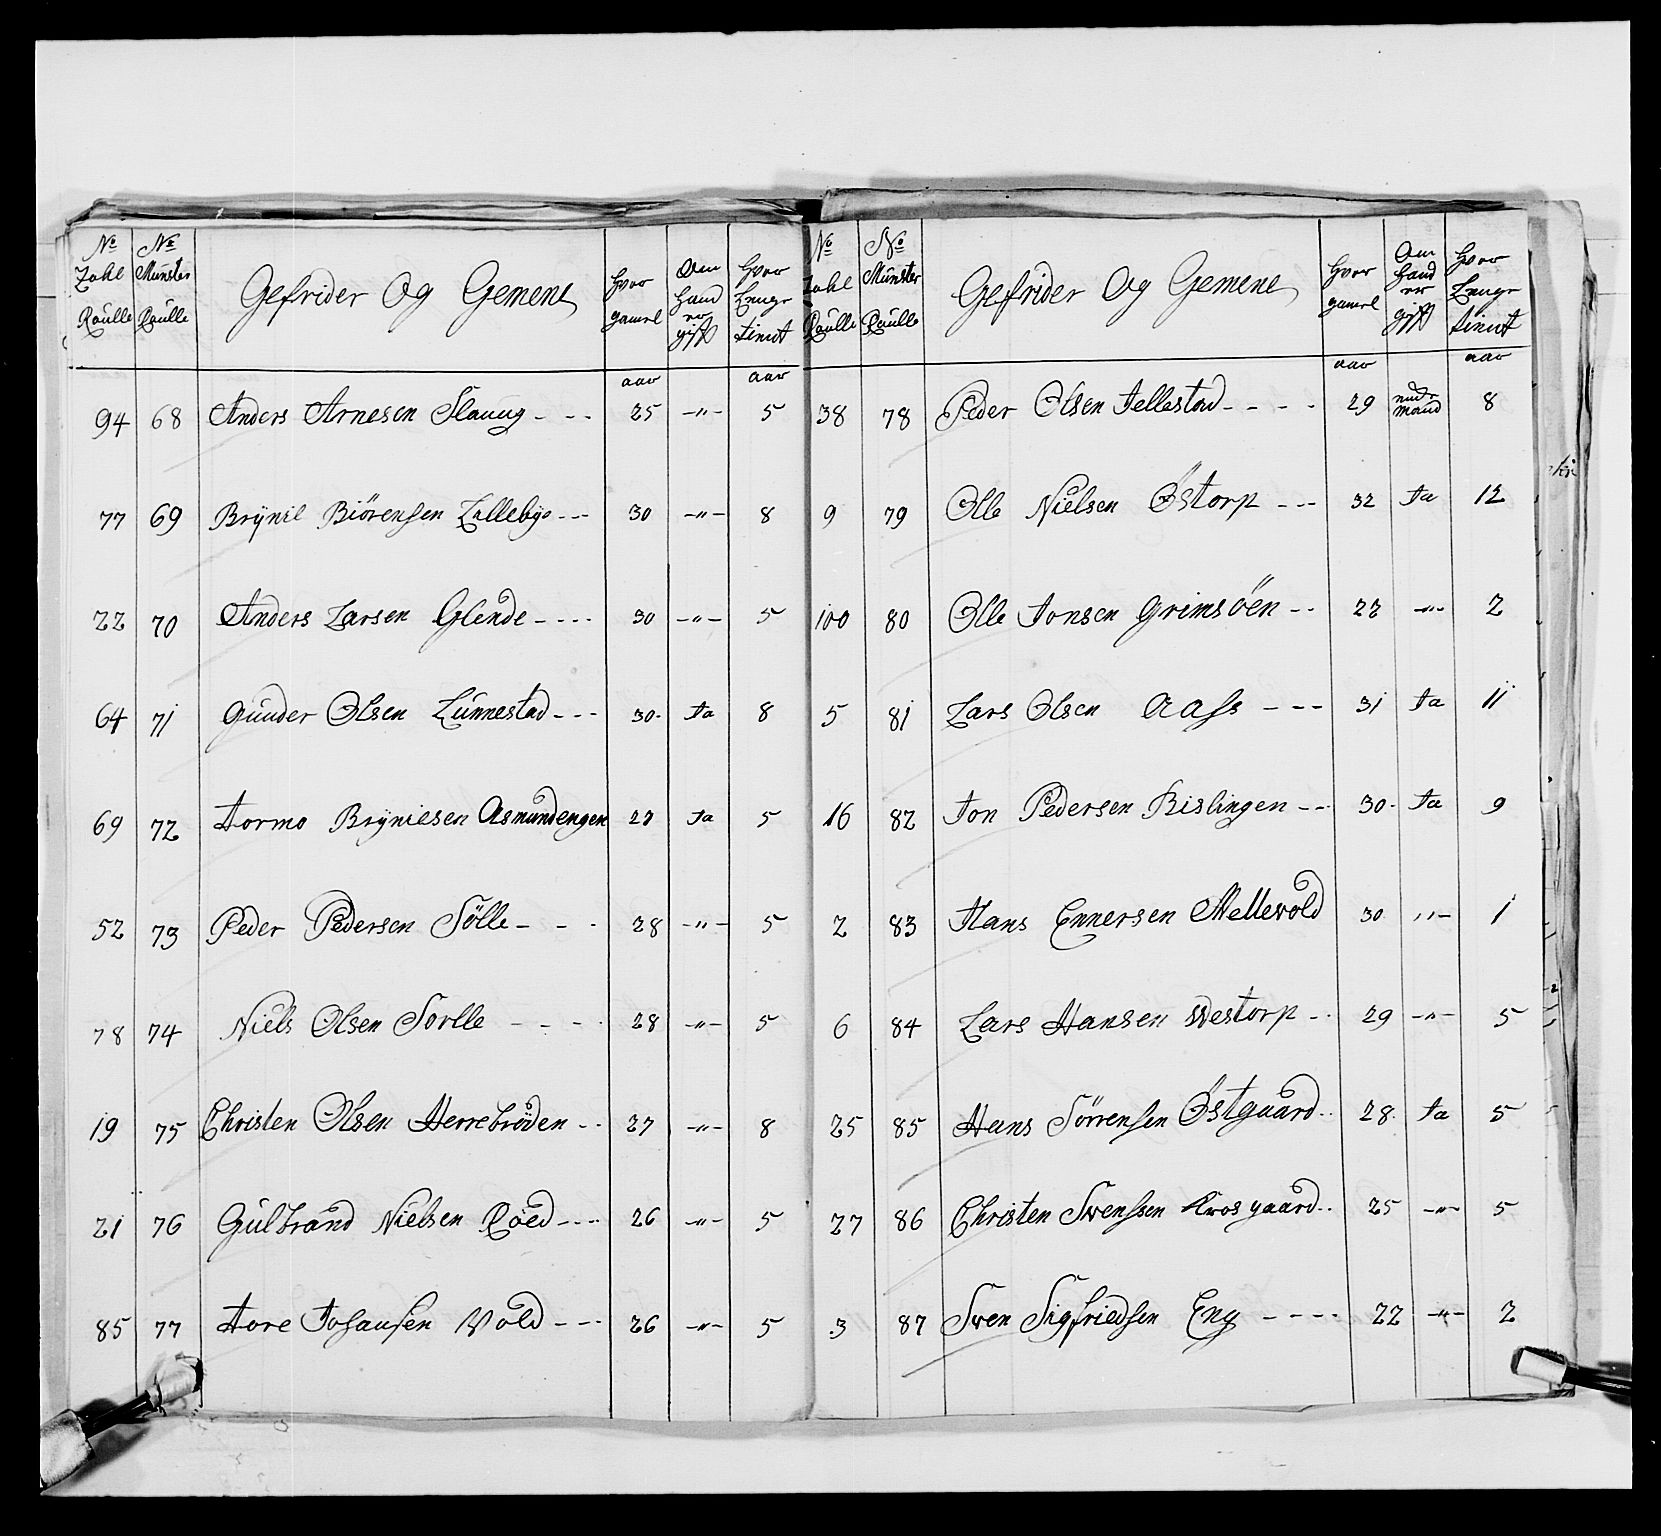 No Zahl Roulle | No Münster Roulle | Gefrider Og Gemene | hvor gamel | Om hand er gift | hvor Lenge tient
aar | aar
94 68 Anders Arnesen Slaaug - - - 25 -"- 5
77 69 Brynil Biörensen Lallebye - - - 30 -"- 8
22 70 Anders Larsen Glende - - - - 30 -"- 5
64 71 Gunder Olsen Lunnestad - - - 30 Ja 8
69 72 Tormo Brynielsen Asmundengen 27 Ja 5
52 73 Peder Pedersen Sölle - - - 28 -"- 5
78 74 Niels Olsen Sorlle - - - - 28 -"- 5
19 75 Christen Olsen Herrebröden - - 27 -"- 8
21 76 Gulbrand Nielsen Röed - - - 26 -"- 5
85 77 Tore Johansen Wold - - - 26 -"- 5
No Zahl Roulle | No Münster Roulle | Gefrider Og Gemene | hvor gamel | Om hand er gift | hvor Lenge tient
aar | aar
38 78 Peder Olsen Tellestad - - - - 29 mand 8
9 79 Olle Nielsen Östorp - - - 32 Ja 12
100 80 Olle Jonsen Grimsöen - - 22 -"- 2
5 81 Lars Olsen Aass - - - 31 Ja 11
16 82 Jon Pedersen Kislingen - - 30 Ja 9
2 83 Hans Ennersen Mellevold 30 "- 1
6 84 Lars Hansen Westorp - - 29 -"- 5
25 85 Hans Sörrensen Östgaard - - 28 Ja 5
27 86 Christen Swenssen Krosgaard - - 25 -"- 5
3 87 Swen Sigfriedsen Eng - - - - 22 -"- 2